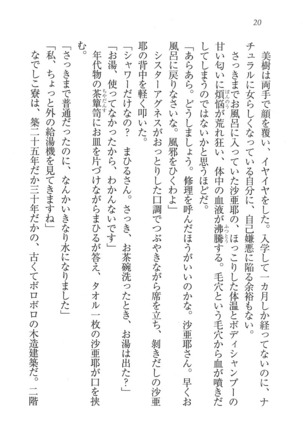 20
美樹は両手で顔を覆い、イヤイヤをした。入学して一カ月しか経ってないのに、ナ
チュラルに女らしくなっている自分に、自己嫌悪に陥る余裕もない。
さっきまでお風呂に入っていた沙亜耶の、ほっこりした体温とボディシャンプーの
甘い匂いに煩悩が荒れ狂い、体中の血液が沸騰する。毛穴という毛穴から血が噴きだ
してしまうのではないかと思うほどだ。
「あらあら。どうしましょう。修理を呼んだほうがいいのかな。沙亜耶さん。早くお
風呂に戻りなさいな。風邪をひくわよ」
シスターアグネスがおっとりした口調でつぶやきながら席を立ち、剝きだしの沙亜
耶の背中を軽く叩いた。
「シャワーだけなの？　まひるさん。さっき、お茶碗洗ったとき、お湯は出た？」
「お湯、使ってなかったから、わかんないです」
年代物の茶簞笥にお皿を片づけながらまひるが答え、タオル一枚の沙亜耶が口を挟
む。
「さっきまで普通だったのに、なんかいきなり水になりました」
「私、ちょっと外の給湯機を見てきますね」
なでしこ寮は、築二十五年だか三十年だかの、古くてボロボロの木造建築だ。二階